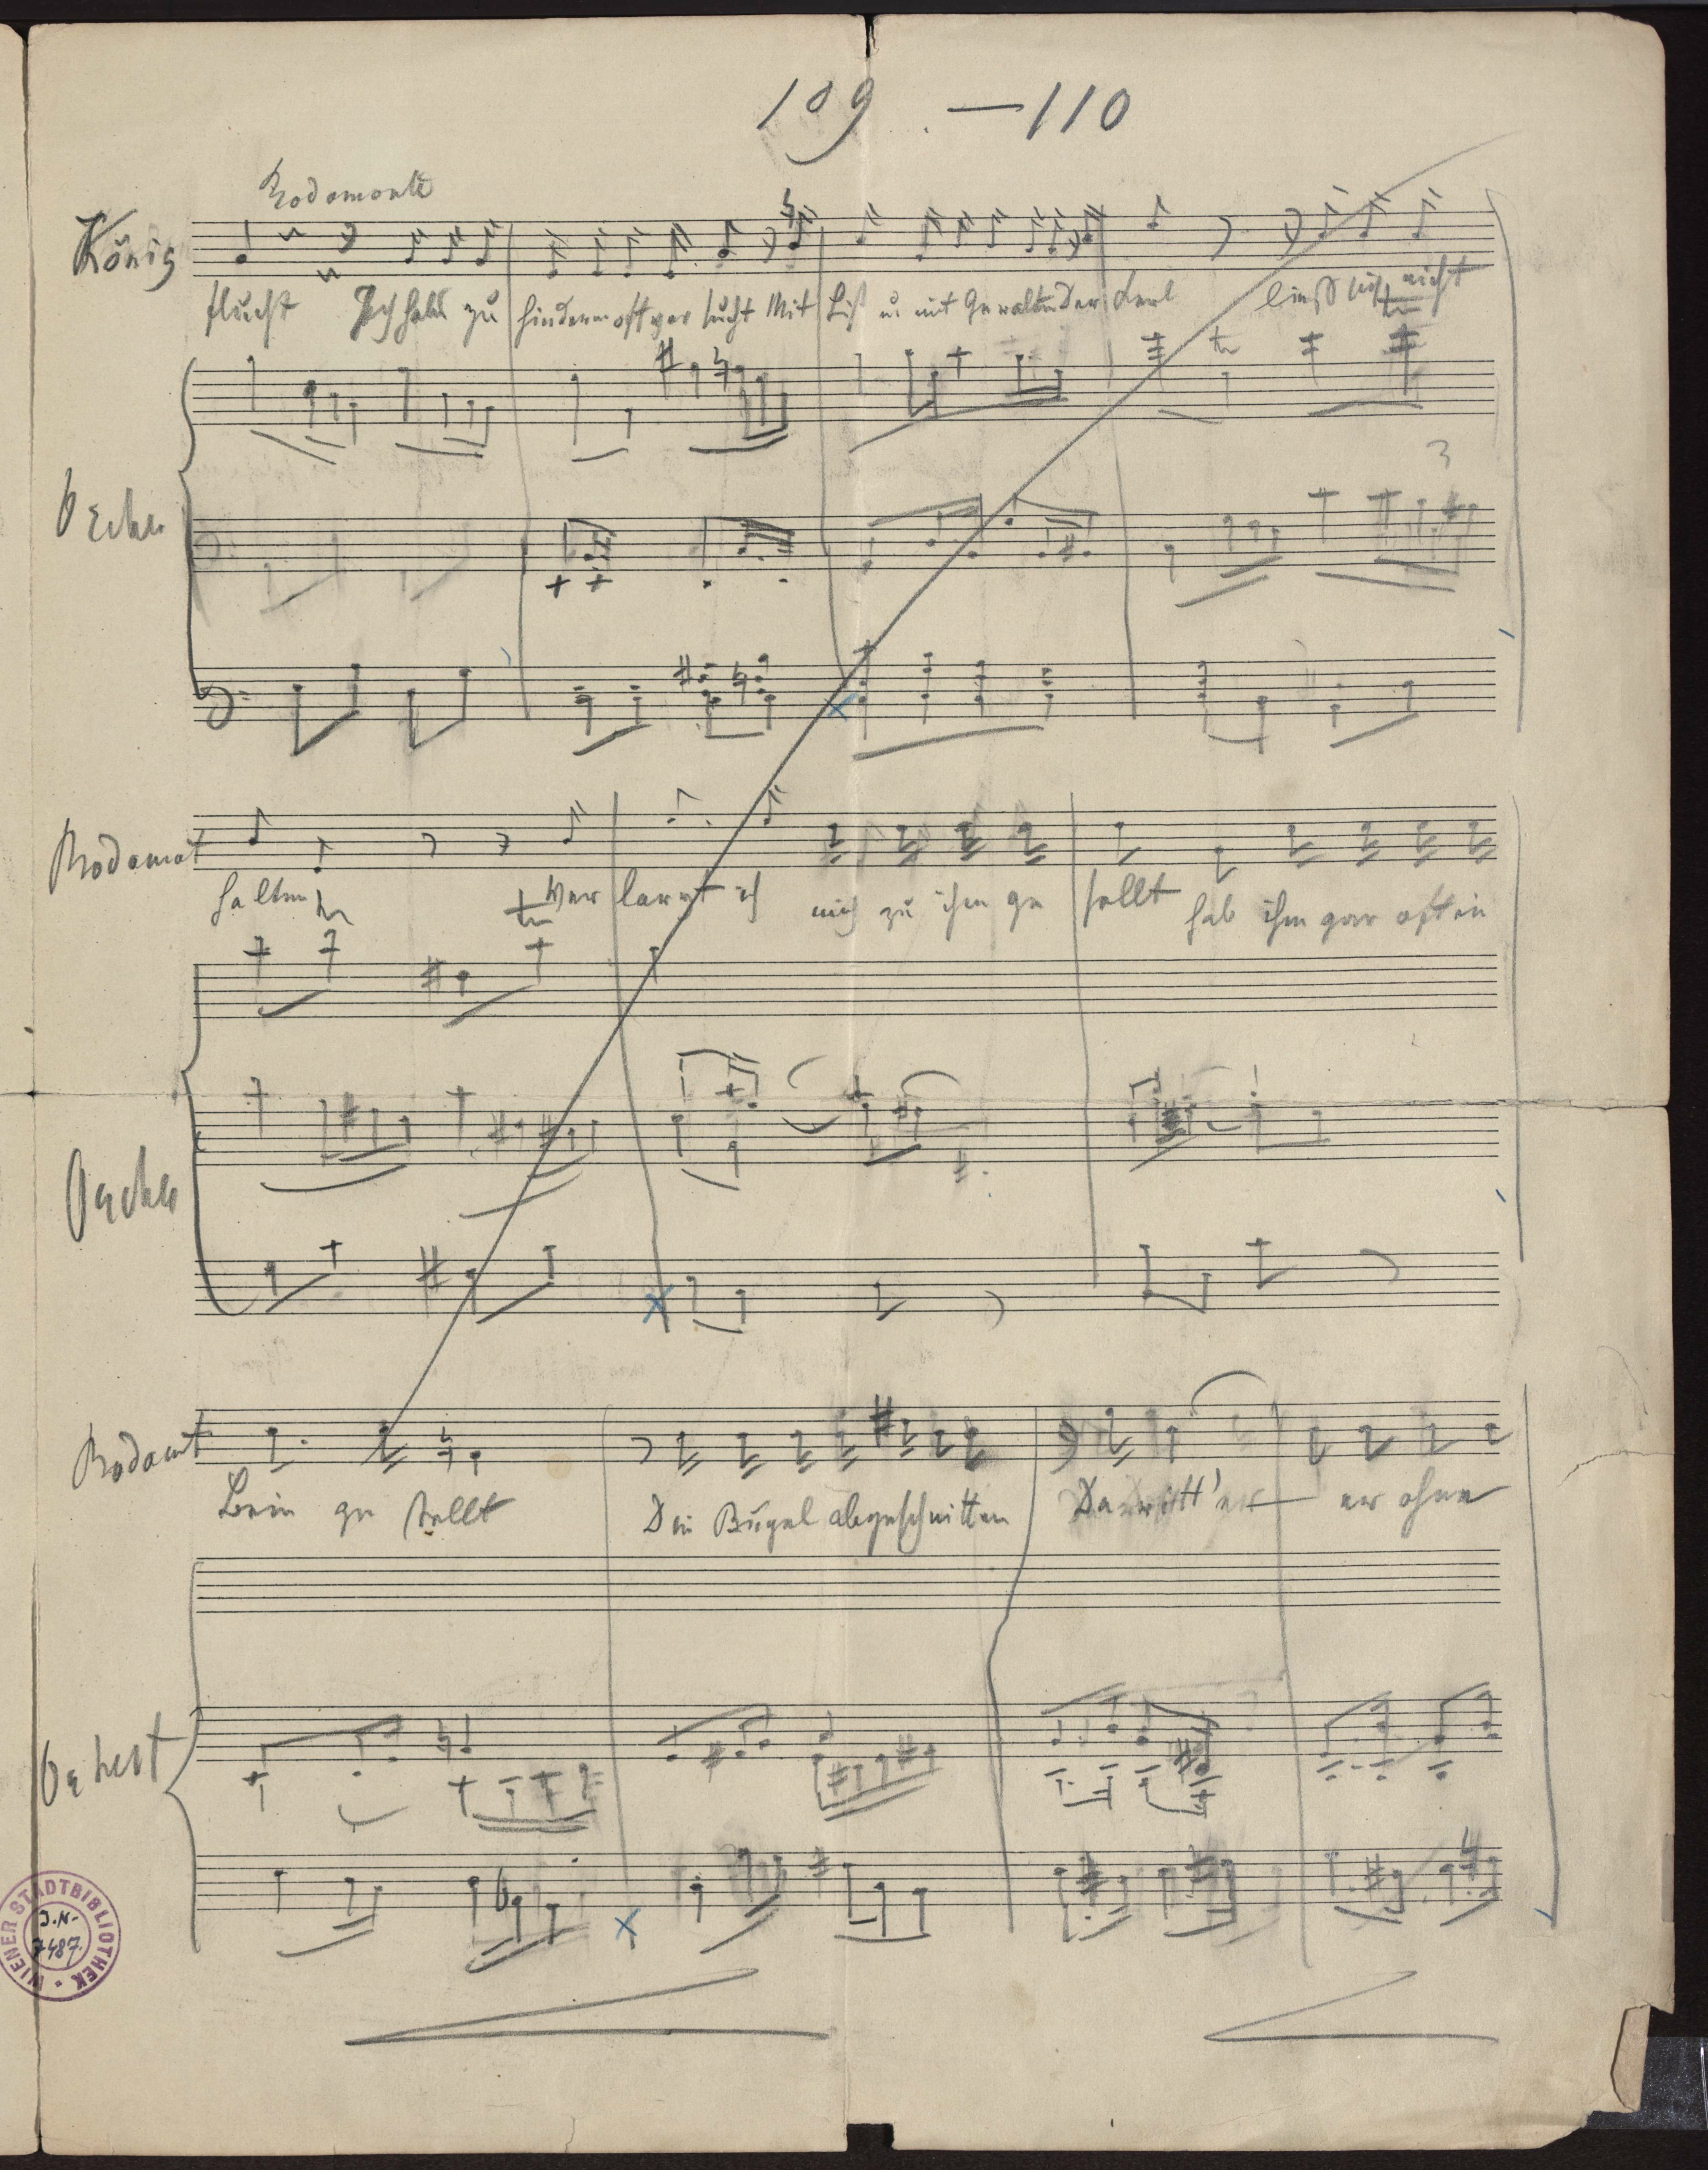 109 — 110
Rodomonte
König
flucht Ich habe zu hindern oft versucht Mit List u mit Gewalt Der Kerl ließ sich nicht
Orches
Rodomot
halten Verlarvt ich mich zu ihm gesellt hab ihm gar oft ein
Orches
Rodomt
Bein gestellt Die Bügel abgeschnitten Da ritt' er — er ohne
Orchest
WIENER STADTBIBLIOTHEK
J.N.
7487